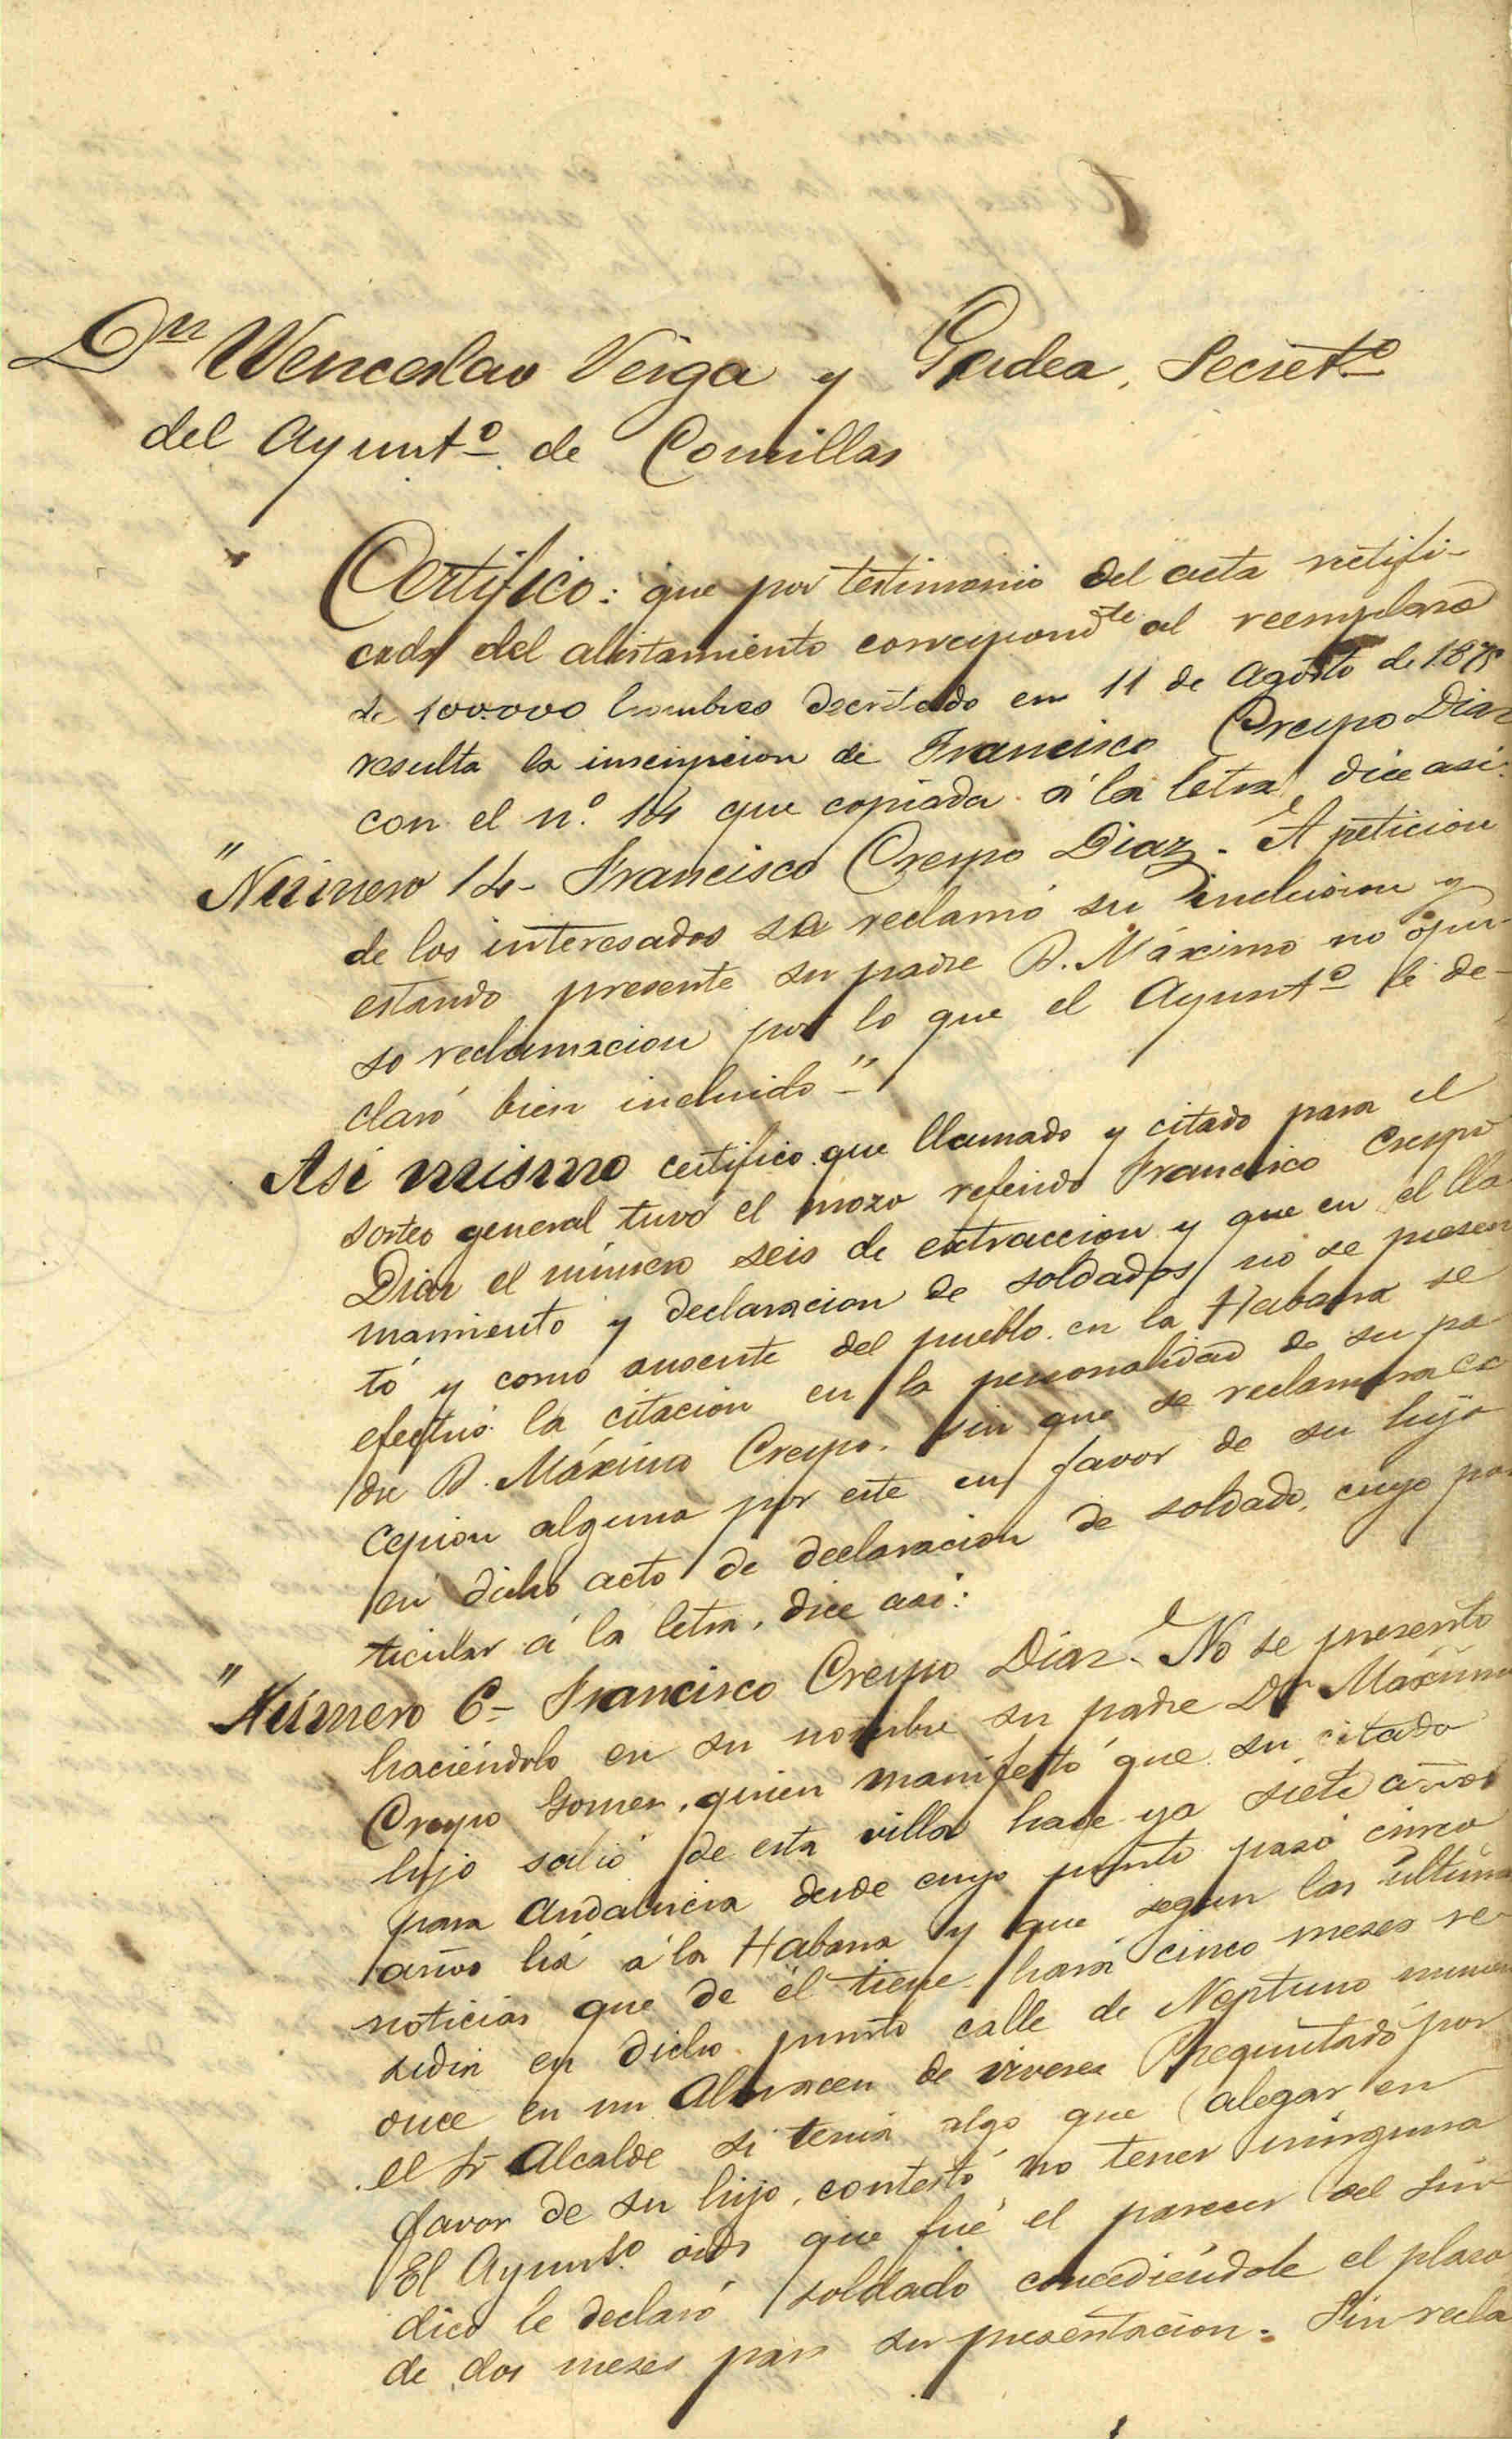 Dn Wenceslao Veiga y Gadea, Secretº
del Ayuntº de Comillas
Certifico: que por testimonio del acta rectifi-
cada del alistamiento correspondte al reemplazo
de 100.000 hombres decretado en 11 de Agosto de 1875
resulta la inscripcion de Francisco Crespo Diaz
con el n.º 14 que copiada á la letra dice asi:
"Número 14 - Francisco Crespo Diaz. A peticion
de los interesados se reclamó su inclusion y
estando presente su padre D. Máximo no opu-
so reclamacion por lo que el Ayuntº le de-
claró bien incluido"
Asi mismo certifico que llamado y citado para el
sorteo general tuvo el mozo referido Francisco Crespo
Diaz el número seis de extraccion y que en el lla-
mamiento y declaracion de soldados no se presen
tó y como ausente del pueblo en la Habana se
efectuó la citacion en la personalidad de su pa-
dre D. Máximo Crespo, sin que se reclamara ex
cepcion alguna por este en favor de su hijo
en dicho acto de declaracion de soldado, cuyo par
ticular á la letra, dice asi:
"Número 6 - Francisco Crespo Diaz. No se presentó
haciéndolo en su nombre su padre Dn Máximo
Crespo Gomez, quien manifestó que su citado
hijo salió de esta villa hace ya siete años
para Andalucia desde cuyo punto pasó cinco
años há á la Habana y que segun las ultimas
noticias que de él tiene hará cinco meses re-
sidia en dicho punto calle de Neptuno numero
once en un Almacen de viveres Preguntado por
el Sr Alcalde si tenia algo que alegar en
favor de su hijo, contestó no tener ninguna
El Ayuntº oido que fué el parecer del Sin
dico le declaró soldado concediéndole el plazo
de dos meses para su presentacion. Sin recla